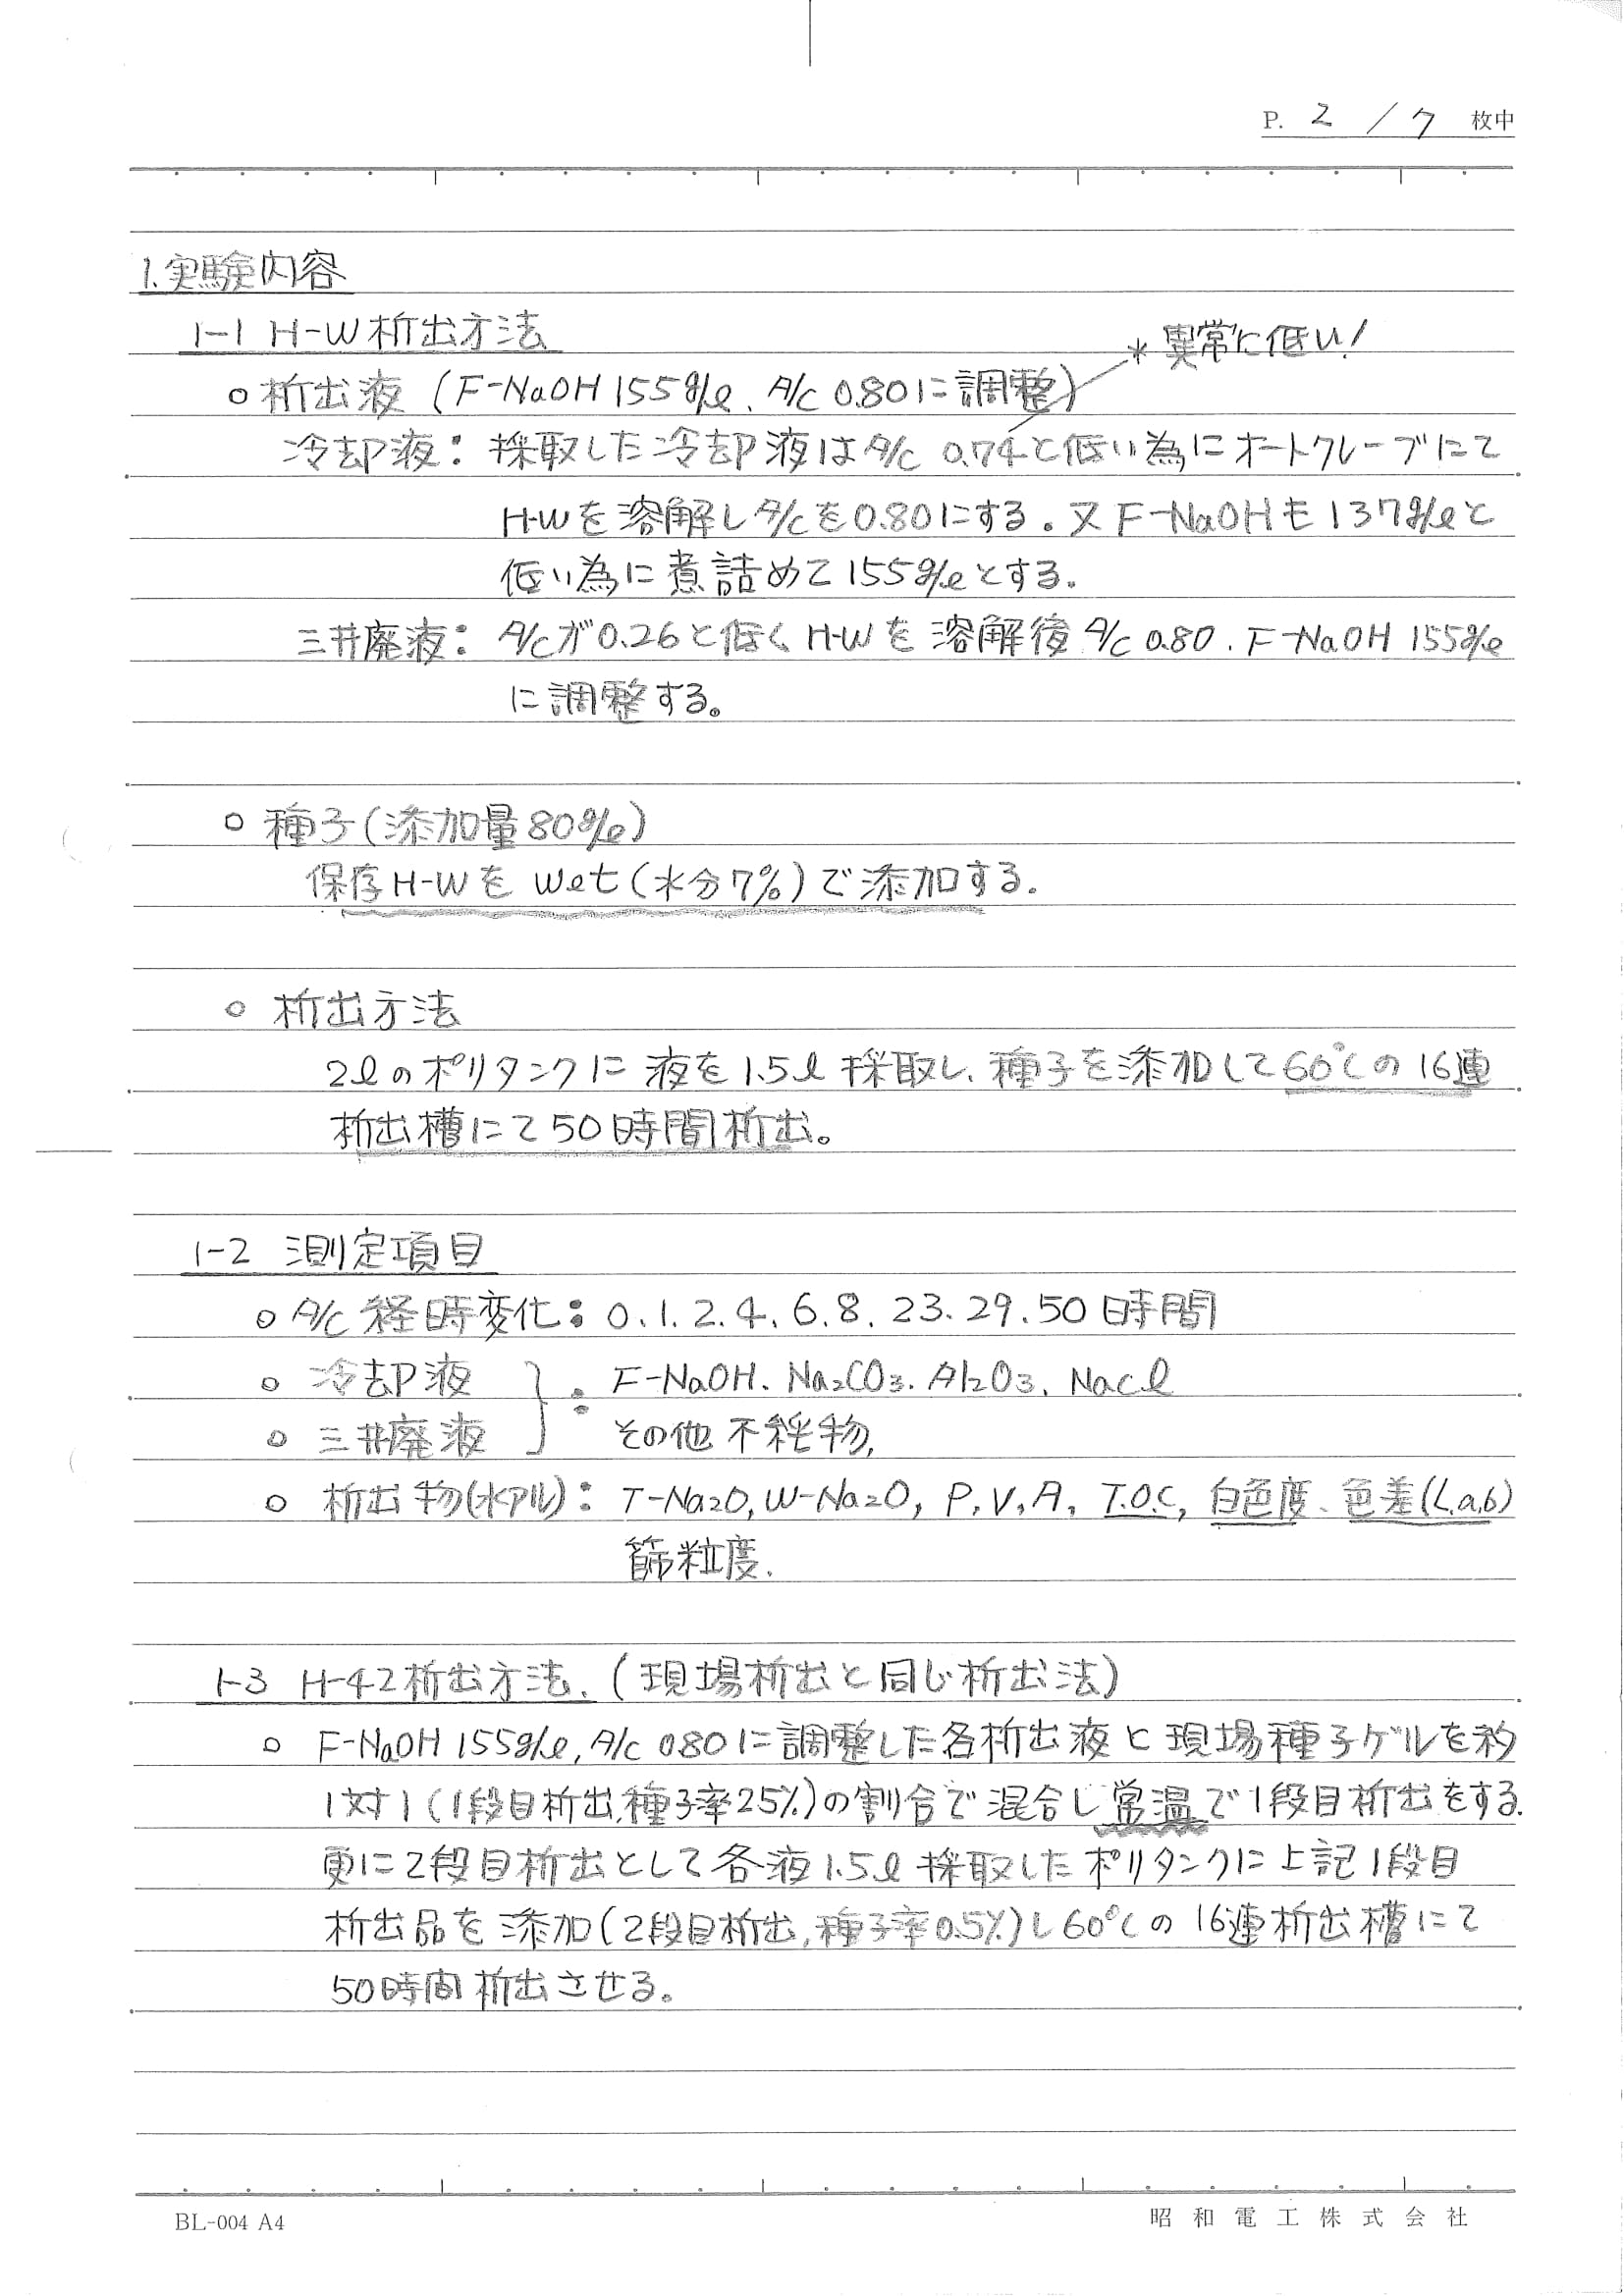 P. 2 / 7 枚中
1.実験内容
1-1 H-W析出方法
* 異常に低い!
○ 析出液 (F-NaOH 155g/l、A/c 0.80に調整)
冷却液: 採取した冷却液はA/c 0.74と低い為にオートクレーブにて
H-Wを溶解しA/cを0.80にする。又F-NaOHも137g/lと
低い為に煮詰めて155g/lとする.
三井廃液: A/cが0.26と低くH-Wを溶解後A/c 0.80. F-NaOH 155g/l
に調整する。
○ 種子(添加量80g/l)
保存H-Wを wet(水分7%)で添加する.
○ 析出方法
2lのポリタンクに液を1.5l採取し、種子を添加して60℃の16連
析出槽にて50時間析出。
1-2 測定項目
○ A/c 経時変化: 0.1.2.4.6.8.23.29.50時間
○ 冷却液 } : F-NaOH. Na2CO3. Al2O3. Nacl
○ 三井廃液 その他不純物,
○ 析出物(水アル): T-Na2O, W-Na2O, P, V, A, T.O.C, 白色度、色差(L.a.b)
篩粒度.
1-3 H-42析出方法. (現場析出と同じ析出法)
○ F-NaOH 155g/l, A/c 0.80に調整した各析出液と現場種子ゲルを約
1対1(1段目析出,種子率25%)の割合で混合し常温で1段目析出をする.
更に2段目析出として各液1.5l採取したポリタンクに上記1段目
析出品を添加(2段目析出,種子率0.5%)し60℃の16連析出槽にて
50時間析出させる。
BL-004 A4
昭和電工株式会社